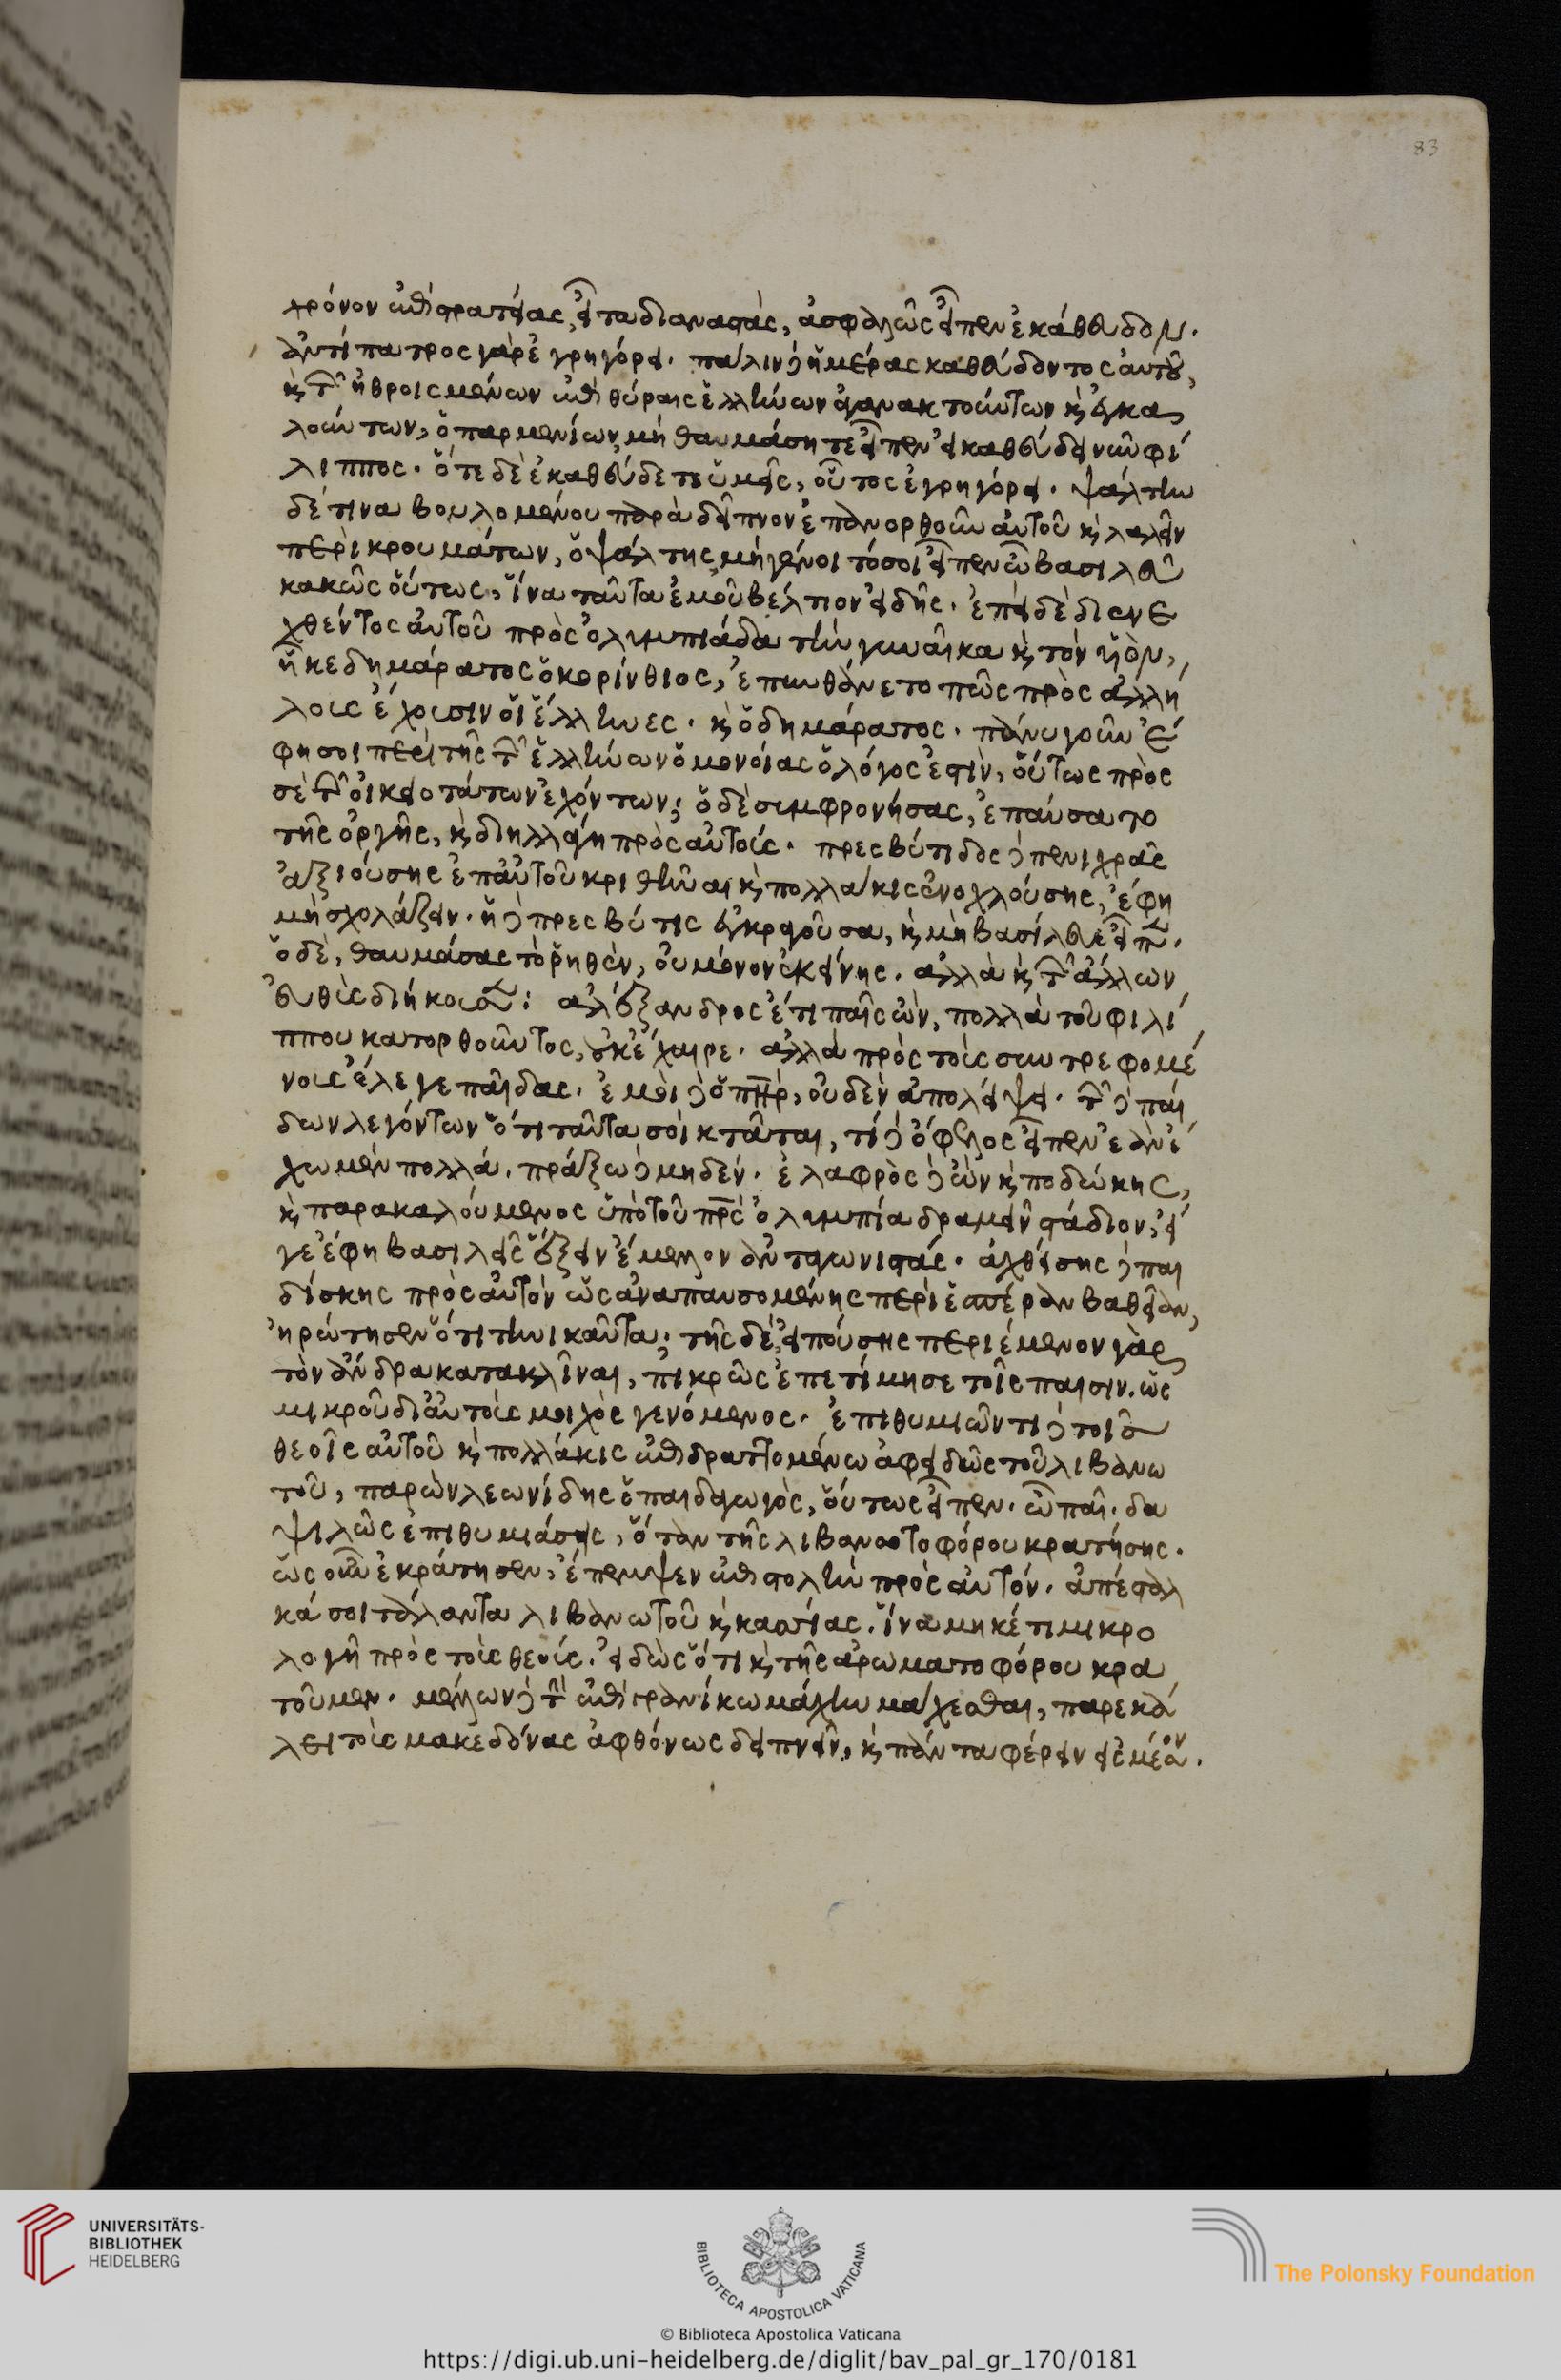 83
χρόνον ἐπὶ στρατείας, εἶτα διαναστὰς, ἀσφαλῶς εἶπεν ἐκάθευδον.
ἀντίπατρος γὰρ ἐγρηγόρει. πάλιν δὲ ἡμέρας καθεύδοντος αὐτοῦ,
καὶ τῶν ἠθροισμένων ἐπὶ θύραις ἑλλήνων ἀγανακτούντων καὶ ἐγκα
λούντων, ὁ παρμενίων, μὴ θαυμάσητε εἶπεν εἰ καθεύδει νῦν φί
λιππος. ὅτε δὲ ἐκαθεύδετε ὑμεῖς, οὗτος ἐγρηγόρει. ψάλτην
δέ τινα βουλομένου παρὰ δεῖπνον ἐπανορθοῦν αὐτοῦ καὶ λαλεῖν
περὶ κρουμάτων, ὁ ψάλτης, μὴ γένοιτό σοι εἶπεν ὦ βασιλεῦ
κακῶς οὕτως, ἵνα ταῦτα ἐμοῦ βέλτιον εἰδῇς. ἐπεὶ δὲ διενε
χθέντος αὐτοῦ πρὸς ὀλυμπιάδα τὴν γυναῖκα καὶ τὸν υἱὸν,
ἧκε δημάρατος ὁ κορίνθιος, ἐπυνθάνετο πῶς πρὸς ἀλλή
λους ἔχουσιν οἱ ἕλληνες. καὶ ὁ δημάρατος. πάνυ γοῦν ἔ
φη σοι περὶ τῆς τῶν ἑλλήνων ὁμονοίας ὁ λόγος ἐστὶν, οὕτως πρὸς
σὲ τῶν οἰκειοτάτων ἐχόντων; ὁ δὲ συμφρονήσας, ἐπαύσατο
τῆς ὀργῆς, καὶ διηλλάγη πρὸς αὐτούς. πρεσβύτιδος δὲ πενιχρᾶς
ἀξιούσης ἐπ' αὐτοῦ κριθῆναι καὶ πολλάκις ἐνοχλούσης, ἔφη
μὴ σχολάζειν. ἡ δὲ πρεσβύτις ἐκκραγοῦσα, καὶ μὴ βασίλευε εἶπεν.
ὁ δὲ, θαυμάσας τὸ ῥηθὲν, οὐ μόνον ἐκείνης. ἀλλὰ καὶ τῶν ἄλλων
εὐθὺς διήκουσεν: ἀλέξανδρος ἔτι παῖς ὢν, πολλὰ τοῦ φιλί
ππου κατορθοῦντος, οὐκ ἔχαιρε. ἀλλὰ πρὸς τοὺς συντρεφομέ
νους ἔλεγε παῖδας. ἐμοὶ δὲ ὁ πὴρ, οὐδὲν ἀπολείψει. τῶν δὲ παί
δων λεγόντων ὅτι ταῦτα σοὶ κτᾶται, τί δὲ ὄφελος εἶπεν ἐὰν ἔ
χω μὲν πολλά. πράξω δὲ μηδέν. ἐλαφρὸς δὲ ὢν καὶ ποδώκης,
καὶ παρακαλούμενος ὑπὸ τοῦ πρς ὀλύμπια δραμεῖν στάδιον, εἴ
γε ἔφη βασιλεῖς ἕξειν ἔμελλον ἀνταγωνιστάς. ἀχθείσης δὲ παι
δίσκης πρὸς αὐτὸν ὡς ἀναπαυσομένης περὶ ἑσπέραν βαθεῖαν,
ἠρώτησεν ὅτι τηνικαῦτα; τῆς δὲ, εἰπούσης περιέμενον γὰρ
τὸν ἄνδρα κατακλῖναι, πικρῶς ἐπετίμησε τοῖς παισὶν. ὡς
μικροῦ δι' αὐτοὺς μοιχὸς γενόμενος. ἐπιθυμιῶντι δὲ τοῖς
θεοῖς αὐτοῦ καὶ πολλάκις ἐπιδραττομένω ἀφειδῶς τοῦ λιβανω
τοῦ, παρὼν λεωνίδης ὁ παιδαγωγὸς, οὕτως εἶπεν. ὦ παῖ. δα
ψιλῶς ἐπιθυμιάσεις, ὅταν τῆς λιβανοτοφόρου κρατήσῃς.
ὡς οὖν ἐκράτησεν, ἔπεμψεν ἐπιστολὴν πρὸς αὐτόν. ἀπέσταλ
κά σοι τάλαντα λιβανωτοῦ καὶ κασίας. ἵνα μηκέτι μικρο
λογῇ πρὸς τοὺς θεούς. εἰδὼς ὅτι καὶ τῆς ἀρωματοφόρου κρα
τοῦμεν. μέλλων δὲ τὴν ἐπὶ γρανίκω μάχην μάχεσθαι, παρεκά
λει τοὺς μακεδόνας ἀφθόνως δειπνεῖν, καὶ πάντα φέρειν εἰς μέσον.
UNIVERSITÄTS-
BIBLIOTHEK
HEIDELBERG
BIBLIOTECA APOSTOLICA VATICANA
The Polonsky Foundation
© Biblioteca Apostolica Vaticana
https://digi.ub.uni-heidelberg.de/diglit/bav_pal_gr_170/0181